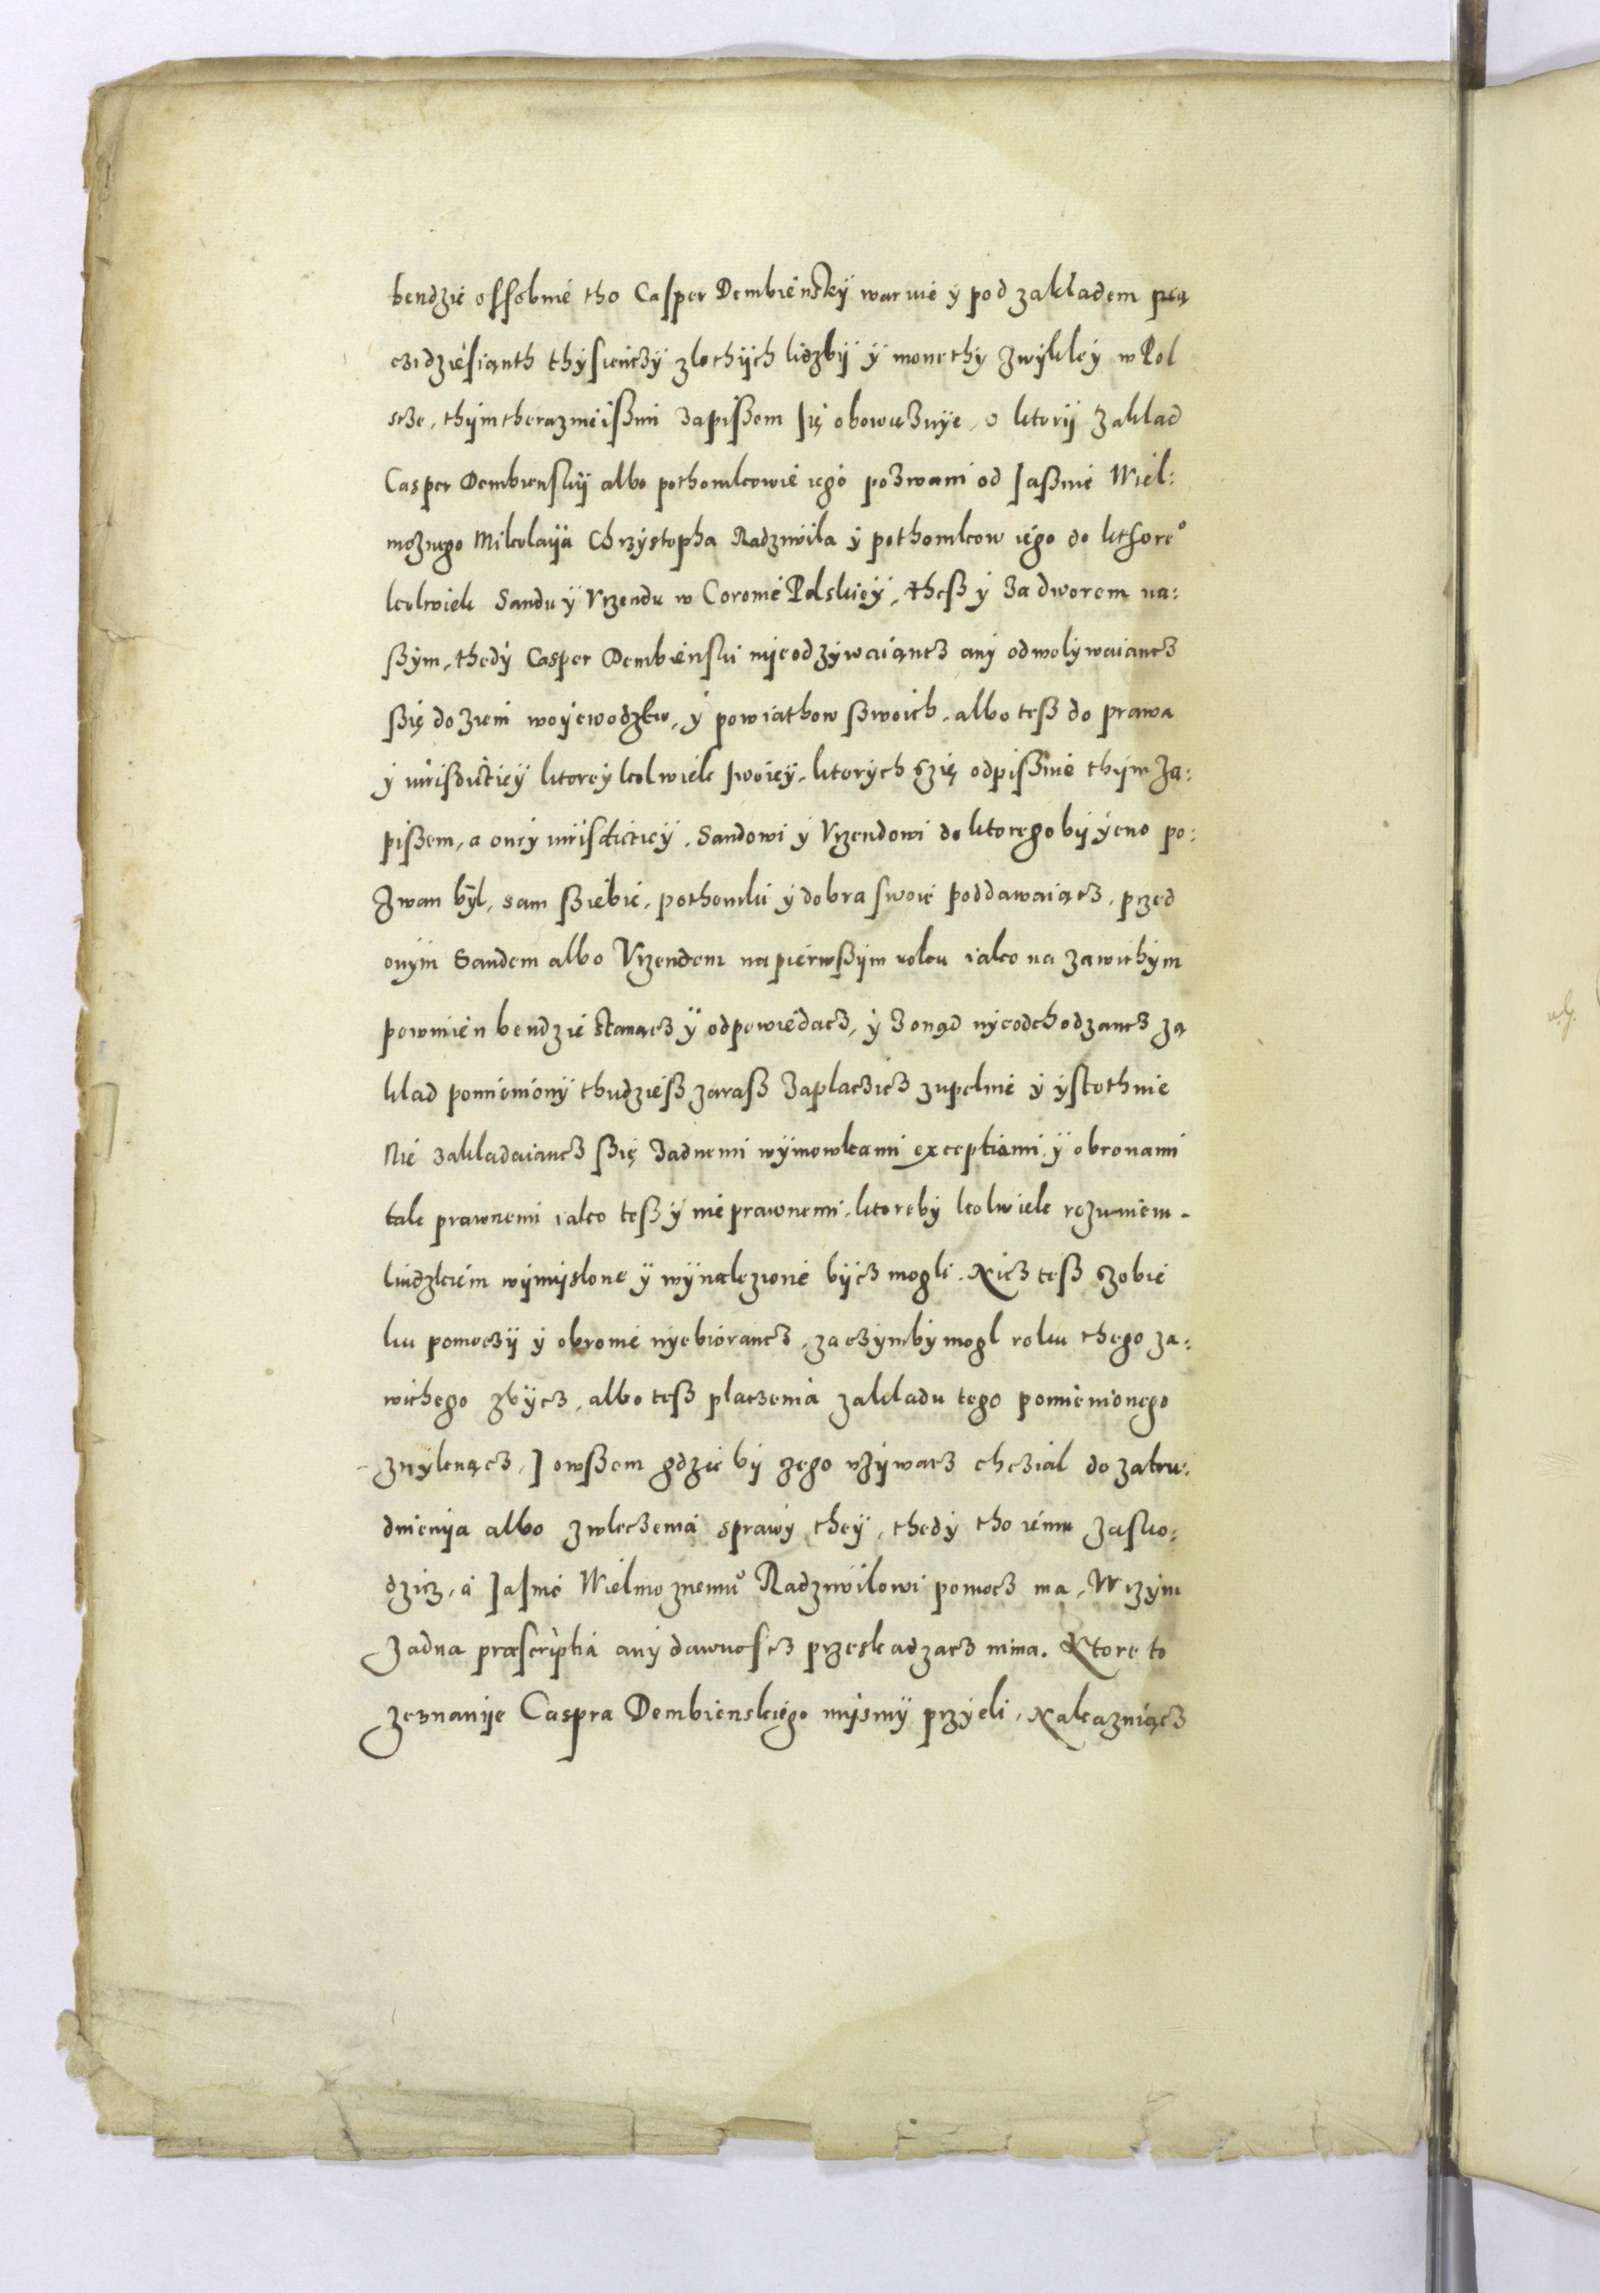 bendzie ossobnie tho Casper Dembienskÿ waruie ÿ pod zakladem pią
czidziesianth thÿsienczÿ zlothÿch lidzbÿ ÿ monethÿ zwÿkleÿ w Pol
scze, thÿm therazmieißmi zapißem się obowięzuÿe, o ktorÿ zaklad
Casper Dembienskÿ albo pothomkowie iego pozwani od Jaßnie Wiel:
moznego Mikolaÿa Chrzÿstopha Radziwila ÿ pothomkow iego do kthore°
kolwiek Sandu ÿ Vrzendu w Coronie Polskieÿ, theß ÿ za dworem na:
ßÿm, thedÿ Casper Dembienski nÿeodzÿwaiancz anÿ odwolÿwaiancz
ßię do ziem woÿewodzkw, ÿ powiathow ßwoich, albo teß do prawa
ÿ iurisdicticÿ ktoreÿ kolwiek swoieÿ, ktorÿch szię odpißuie thÿm za:
pißem, a oneÿ iurisdicticÿ, Sandowi ÿ Vrzendowi do ktorego bÿ ÿeno po:
zwan bÿl, sam ßiebie, pothomki ÿ dobra swoie poddawaiącz, przed
onÿm Sandem albo Vrzendem na pierwßÿm roku iako na zawithÿm
powinien bendzie stanącz ÿ odpowiedacz, ÿ z onąd nÿeodchodzancz za
klad pomienionÿ thudzieß zaraß zaplaczicz zupelnie ÿ ÿstothnie
Nie zakladaiancz ßię zadnemi wÿmowkami exceptiami ÿ obronami
tak prawnemi iako teß ÿ nie prawnemi, ktorebÿ kolwiek rozumem
liudzkiem wÿmÿslone ÿ wÿnalezione bÿcz mogli. Nicz teß szobie
ku pomoczÿ ÿ obronie nÿebiorancz, za czÿmbÿ mogl roku thego za:
withego zbÿcz, albo teß placzenia zakladu tego pomienionego
znÿknącz, J owßem gdzie bÿ czego vzÿwacz chczial do zatru:
dnienÿa albo zwleczenia sprawÿ theÿ, thedÿ tho iemu zasko:
dzicz, a Jasnie Wielmoznemu Radziwilowi pomocz ma, W czÿm
zadna præscriptia anÿ dawnoscz przeskadzacz nima. Ktore to
zeznanÿe Caspra Dembienskiego mÿsmÿ przÿeli, Nakazuiącz